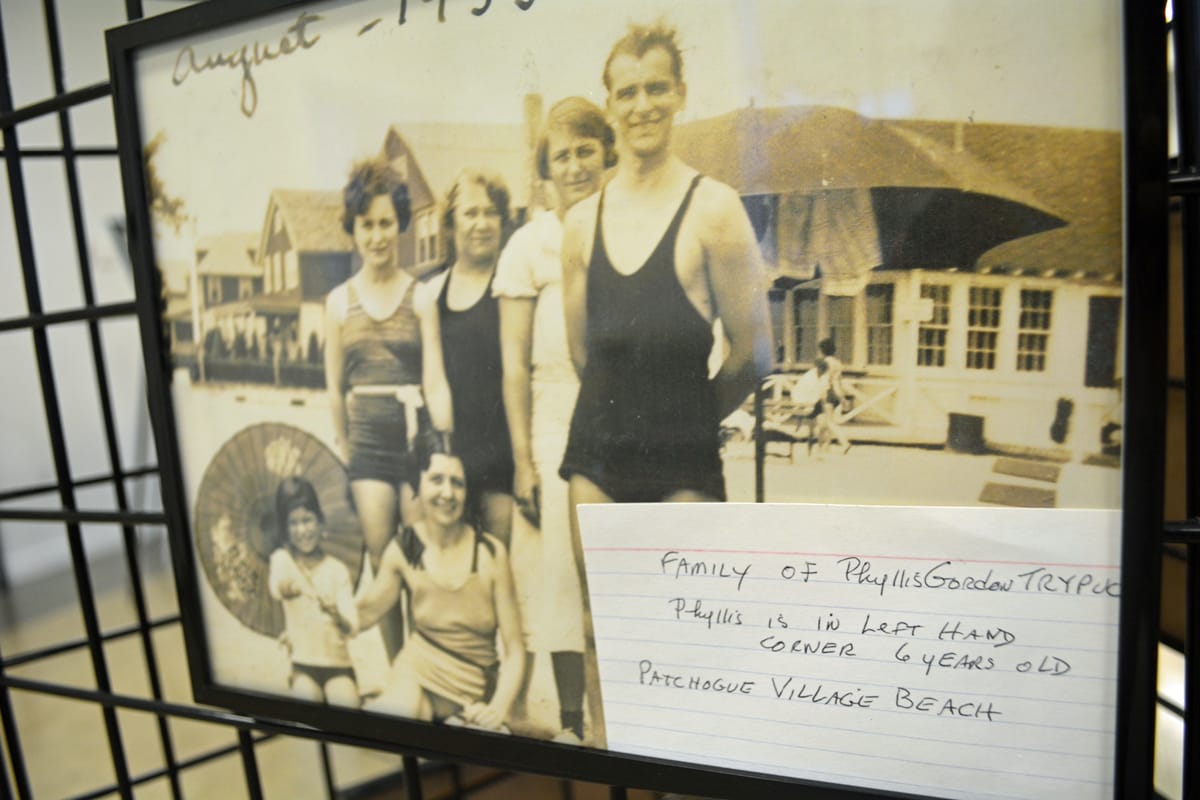 August -
FAMILY OF Phyllis Gordon TRYPUC
Phyllis is in Left HAND
CORNER 6 yEARS OLD
PATCHOGUE VILLAGE BEACH